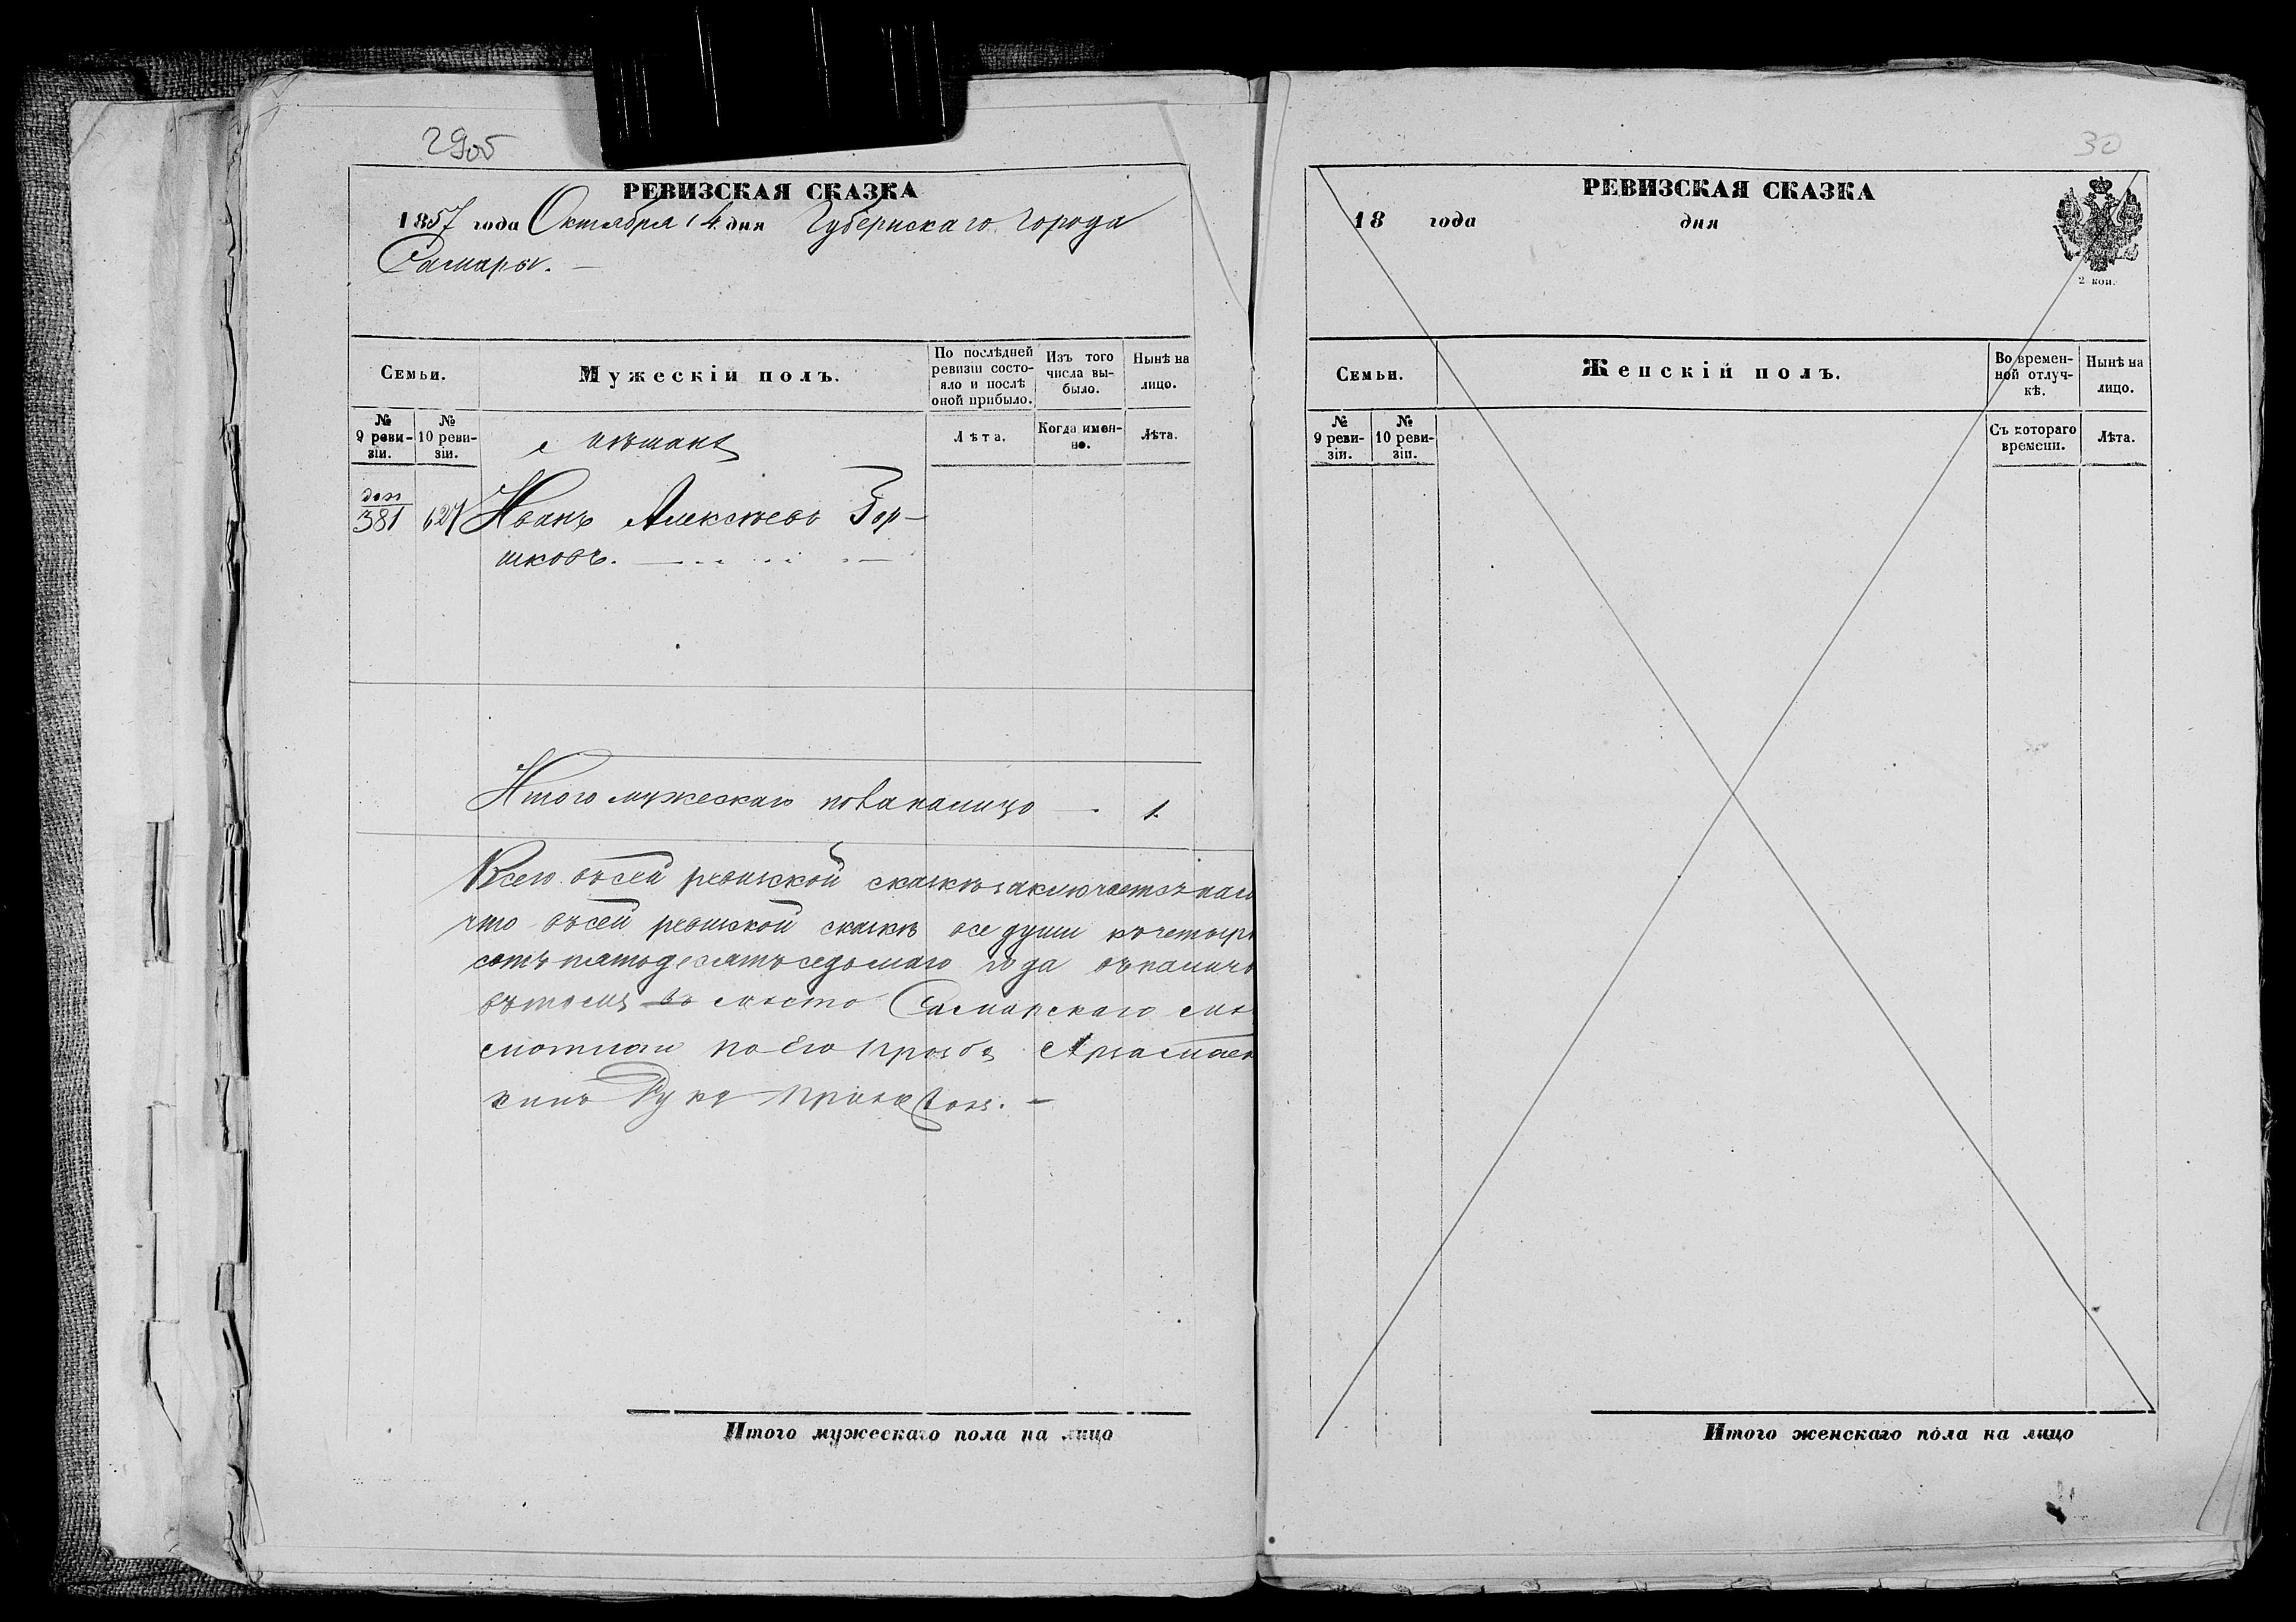 29об
РЕВИЗСКАЯ СКАЗКА
1857 года Октября 14 дня Губернскаго города
Самары. —
Семьи.
Мужескій полъ.
По послѣдней ревизіи состо-
яло и послѣ
оной прибыло.
Изъ того
числа вы-
было.
Нынѣ на
лицо.
№
9 реви-
зіи.
№
10 реви-
зіи.
Мѣщане
Лѣта.
Когда имен-
но.
Лѣта.
доп
381 627 Иванъ Алексѣевъ Гор-
шковъ.
Итого мужескаго пола налицо — 1.
Всего въ сей ревизской сказкѣ заключается
что въ сей ревизской сказкѣ все души
сотъ пятьдесятъ седьмаго года
въ томъ въ мѣсто Самарскаго
по Его прозьбѣ
Руку приложилъ. —
Итого мужескаго пола на лицо
30
РЕВИЗСКАЯ СКАЗКА
18 года дня
2 коп.
Семьи.
Женскій полъ.
Во времен-
ной отлуч-
кѣ.
Нынѣ на
лицо.
№
9 реви-
зіи.
№
10 реви-
зіи.
Съ котораго
времени.
Лѣта.
Итого женскаго пола на лицо